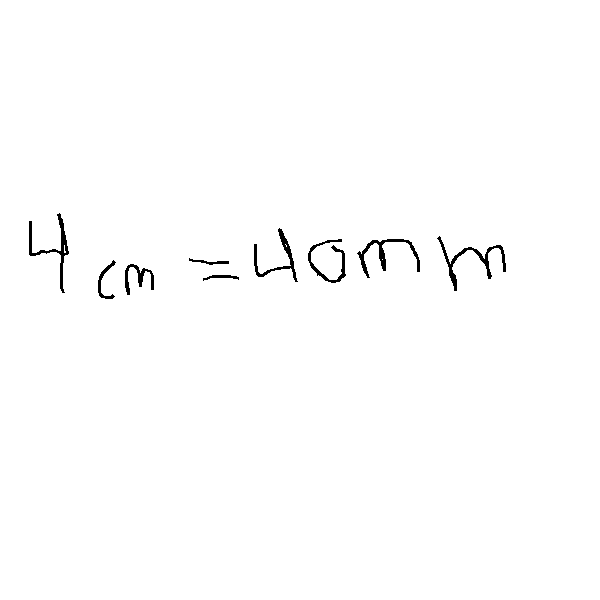 4 cm = 40mm